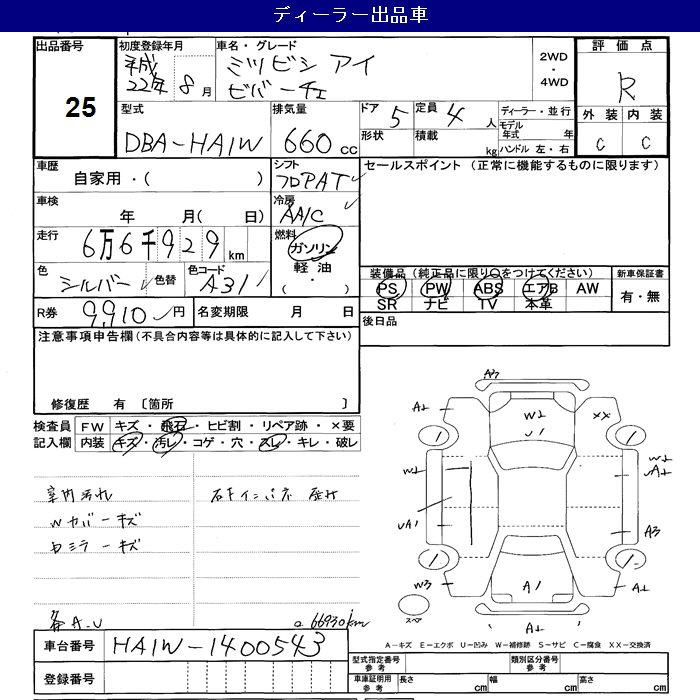 ディーラー出品車
出品番号
25
初度登録年月
平成
22年8月
車名・グレード
ミツビシ アイ
ビバーチェ
2WD
・
4WD
評価点
R
外装 内装
C C
型式
DBA-HA1W
排気量
660cc
ドア 5
形状
定員 4人
積載 kg
ディーラー・並行
モデル年式 年
ハンドル 左・右
車歴
自家用・( )
シフト
フロアAT
セールスポイント (正常に機能するものに限ります)
車検
年 月( 日)
冷房
AA/C
走行
6万6千929km
燃料
ガソリン
軽油
( ・ )
色
シルバー
色替
色コード
A31
装備品(純正品に限り○をつけてください)
PS PW ABS エアB AW
SR ナビ TV 本革
新車保証書
有・無
R券 9,910円
名変期限 月 日
後日品
注意事項申告欄(不具合内容等は具体的に記入して下さい)
修復歴 有 〔箇所
検査員
記入欄
FW キズ・飛石・ヒビ割・リペア跡・×要
内装 キズ・汚レ・コゲ・穴・スレ・キレ・破レ
室内汚れ
Wカバーキズ
ミラーキズ
右キインパネ
A-U
66930km
A3
A1
W1
U1
XX
W1
W1
A1
UA1
A3
W3
A1
A1
A1
スペア
A-キズ E-エクボ U-凹み W-補修跡 S-サビ C-腐食 XX-交換済
車台番号 HA1W-1400543
登録番号
型式指定番号
参考
類別区分番号
参考
車庫証明用
参考
長さ cm 幅 cm 高さ cm